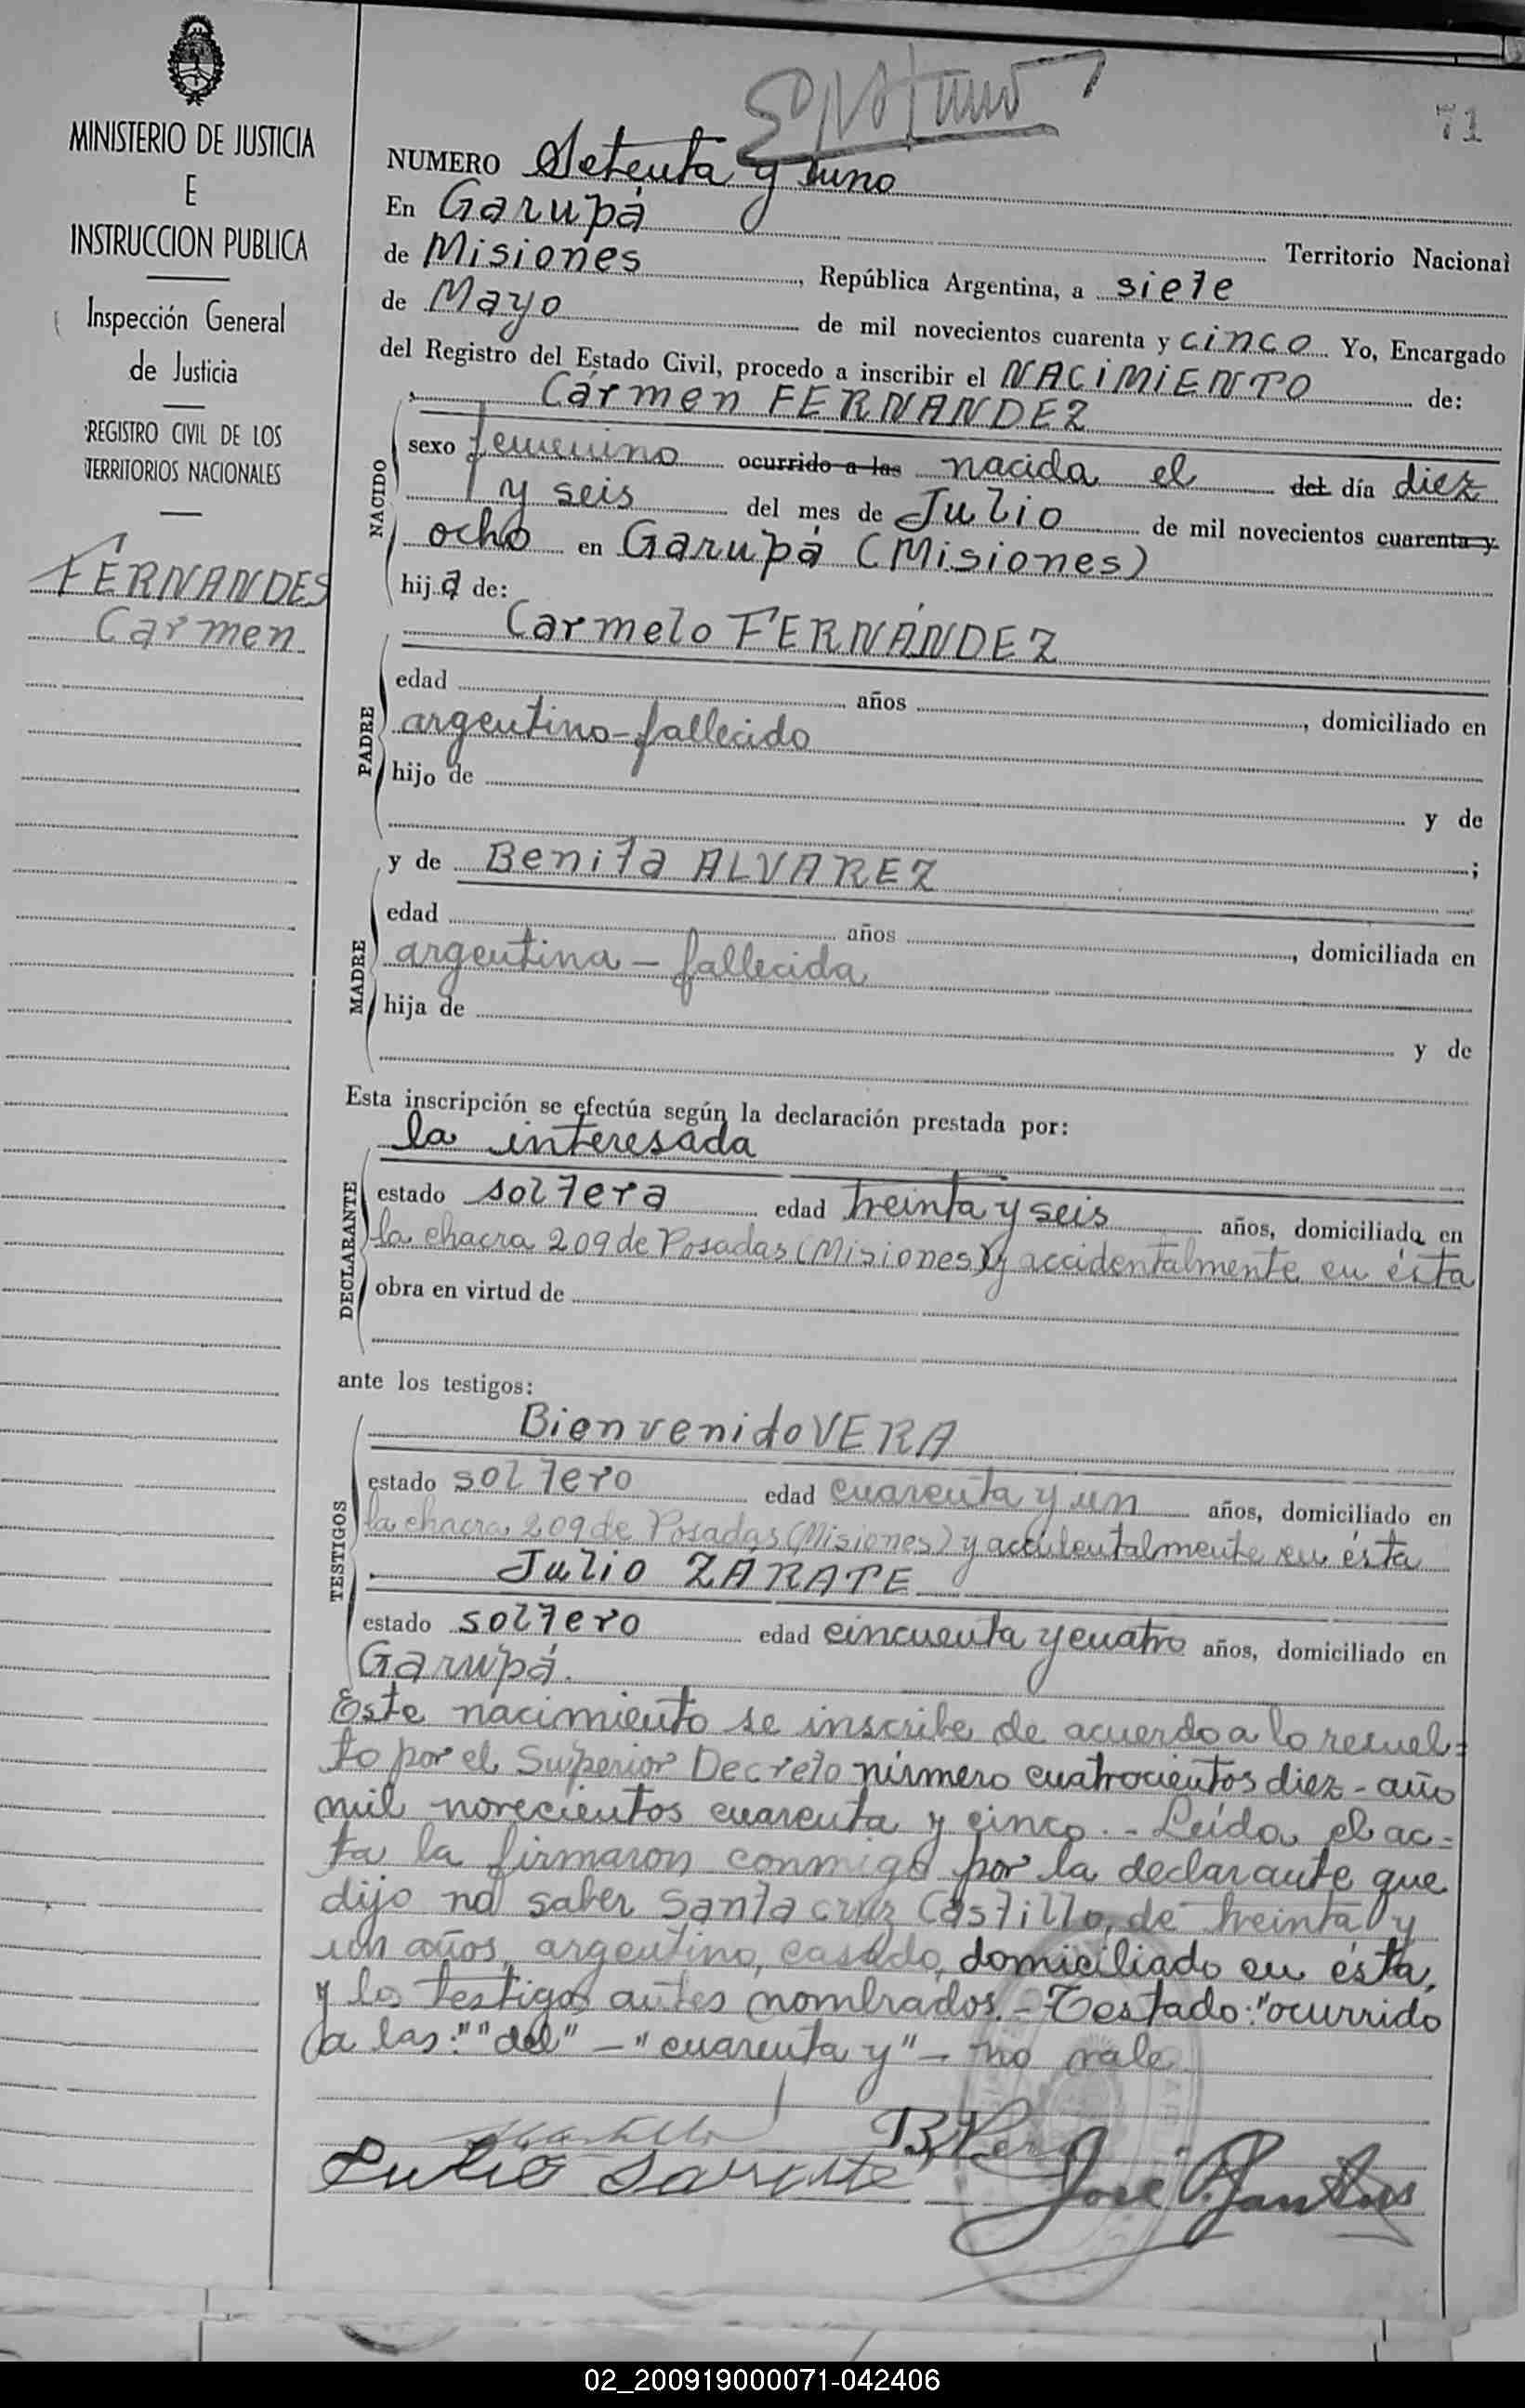 MINISTERIO DE JUSTICIA
E
INSTRUCCION PUBLICA
Inspección General
de Justicia
REGISTRO CIVIL DE LOS
TERRITORIOS NACIONALES
FERNANDES
Carmen
71
NUMERO Setenta y uno
En Garupá Territorio Nacional
de Misiones, República Argentina, a siete
de Mayo de mil novecientos cuarenta y cinco Yo, Encargado
del Registro del Estado Civil, procedo a inscribir el NACIMIENTO de:
Cármen FERNANDEZ
NACIDO
sexo femenino ocurrido a las nacida el del día diez
y seis del mes de Julio de mil novecientos cuarenta y
ocho en Garupá (Misiones)
hija de:
Carmelo FERNÁNDEZ
PADRE
edad años , domiciliado en
argentino-fallecido
hijo de y de
;
y de Benita ALVAREZ
MADRE
edad años , domiciliada en
argentina - fallecida
hija de y de
Esta inscripción se efectúa según la declaración prestada por:
la interesada
DECLARANTE
estado soltera edad treinta y seis años, domiciliada en
la chacra 209 de Posadas (Misiones) y accidentalmente en ésta
obra en virtud de
ante los testigos:
Bienvenido VERA
TESTIGOS
estado soltero edad cuarenta y un años, domiciliado en
la chacra 209 de Posadas (Misiones) y accidentalmente en ésta
Julio ZÁRATE
estado soltero edad cincuenta y cuatro años, domiciliado en
Garupá.
Este nacimiento se inscribe de acuerdo a lo resuel=
to por el Superior Decreto número cuatrocientos diez - año
mil novecientos cuarenta y cinco.- Leída el ac=
ta la firmaron conmigo por la declarante que
dijo no saber Santa cruz Castillo, de treinta y
un años, argentino, casado, domiciliado en ésta,
y los testigos antes nombrados.- Testado: "ocurrido
a las:" "del" - "cuarenta y" - no vale
B Vera
Julio Sarate José Santos
02_200919000071-042406